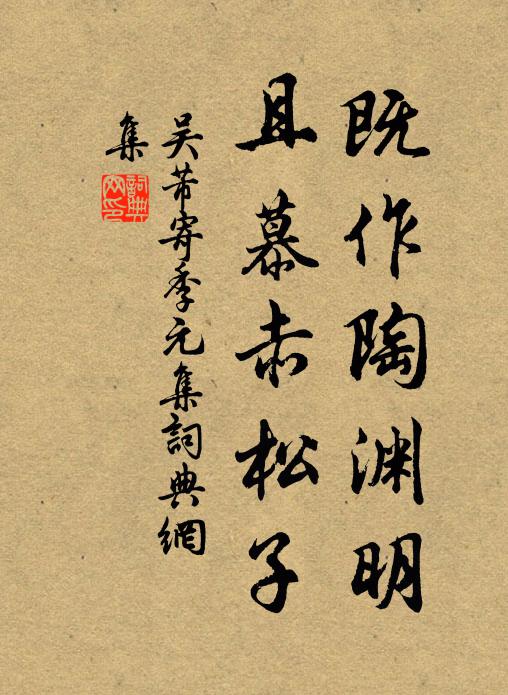 既作陶渊明
且慕赤松子
吴芾寄季元集詞典網
集
詞典網印